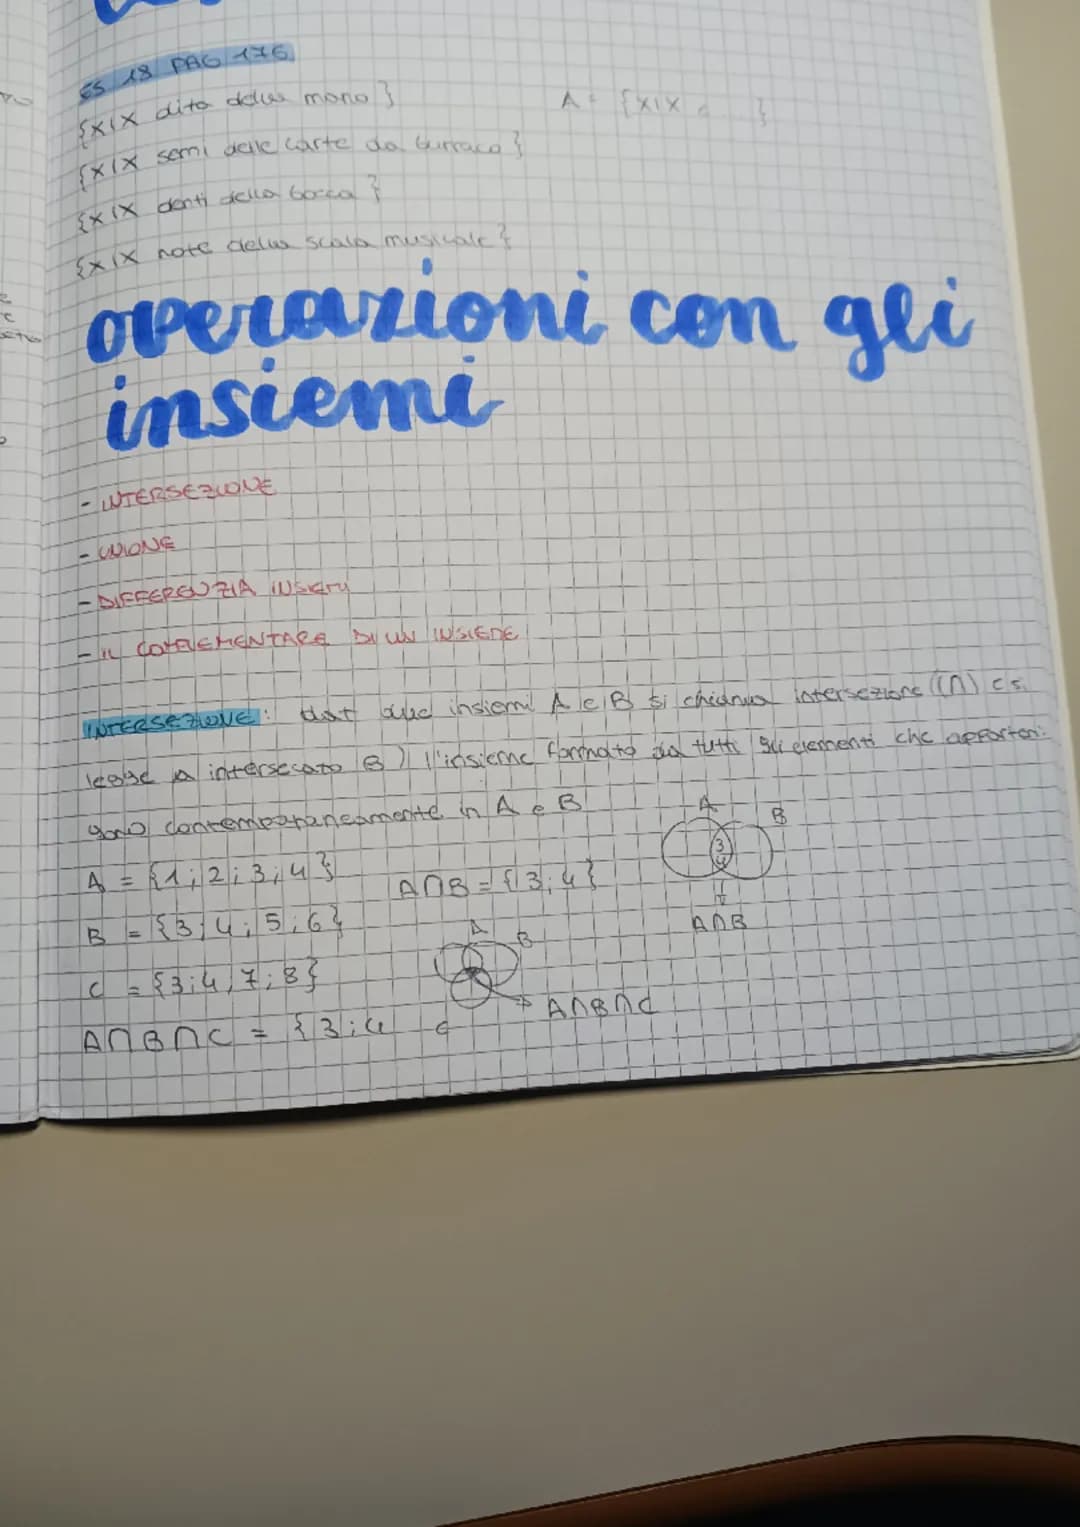 ES 18 PAG 176
{x|x dito della mano}
A = {x|x
{x|x semi delle carte da burraco}
{x|x denti della bocca}
{x|x note della scala musicale}
operazioni con gli
insiemi
- INTERSEZIONE
- UNIONE
- DIFFERENZIA INSIEMI
- IL COMPLEMENTARE DI UN INSIEME
INTERSEZIONE: dati due insiemi A e B si chiama intersezione (∩) (si
legge A intersecato B) l'insieme formato da tutti gli elementi che apparten-
gono contemporaneamente in A e B
A = {1; 2; 3; 4}
A∩B = {3; 4}
A B
3
4
A∩B
B = {3; 4; 5; 6}
C = {3; 4; 7; 8}
A B
C
A∩B∩C
A∩B∩C = {3; 4